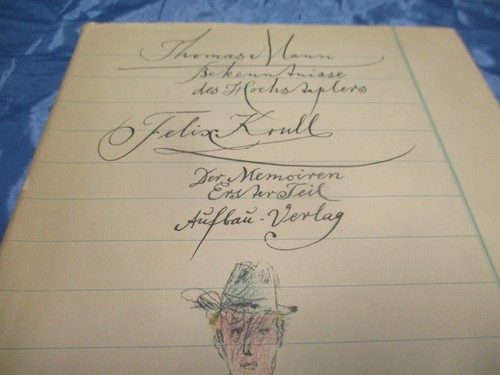 Thomas Mann
Bekenntnisse
des Hochstaplers
Felix Krull
Der Memoiren
Erster Teil
Aufbau-Verlag